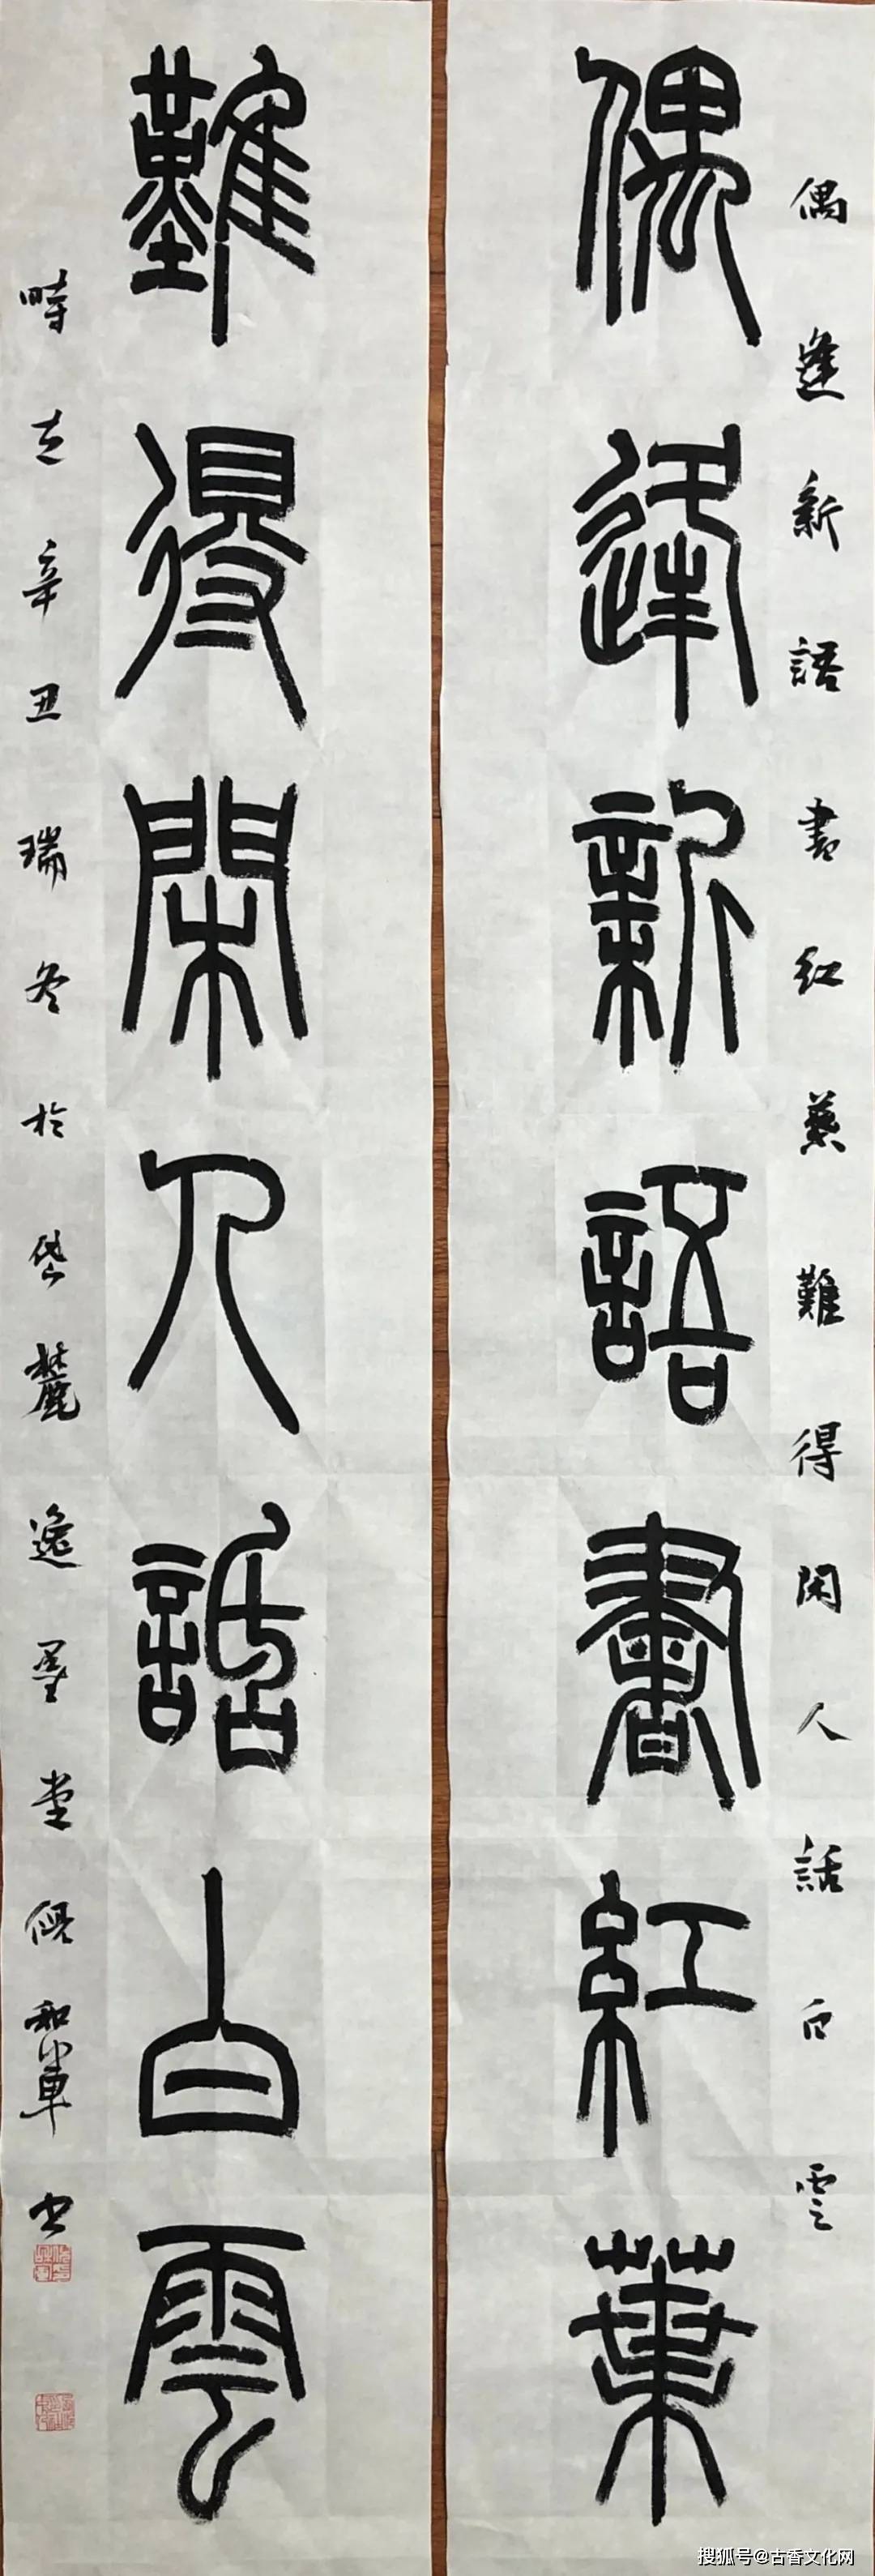 偶逢新語書紅葉難得閑人話白雲
偶逢新語書紅葉
難得閑人話白雲
時在辛丑瑞冬於岱麓逸墨堂倪和軍書
搜狐号@古香文化网